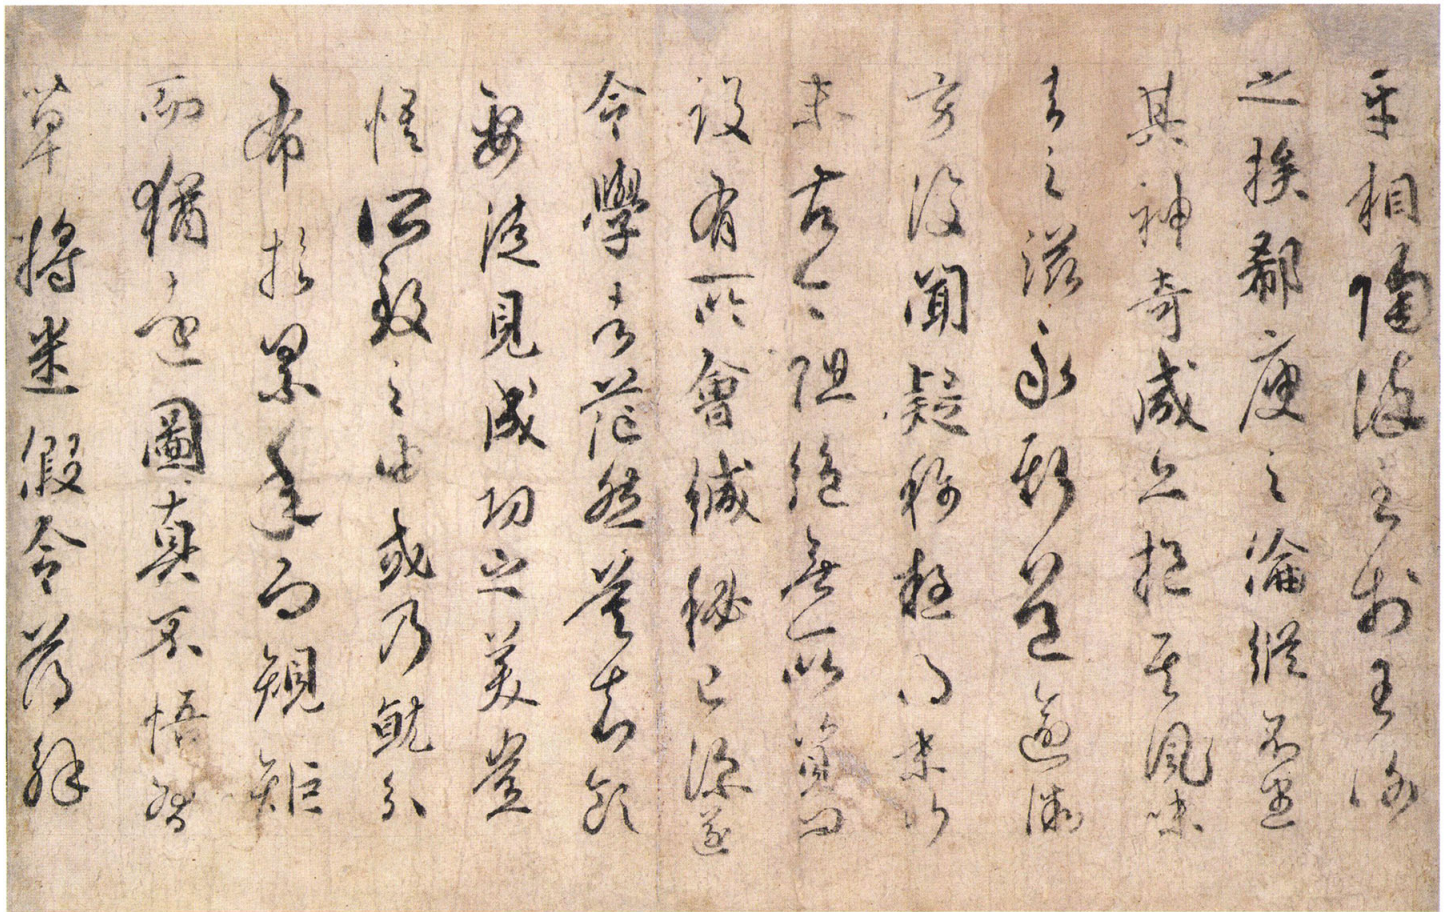 互相陶淬至於王謝
之族郗庾之倫縱不盡
其神奇咸亦挹其風味
去之滋永斯道逾微
方復聞疑稱疑得末行
末古今阻絕無所質問
設有所會緘秘已深遂
令學者茫然莫知領
要徒見成功之美豈
悟所致之由或乃就分
布於累年向規矩
而猶遠圖真不悟習
草將迷假令薄解